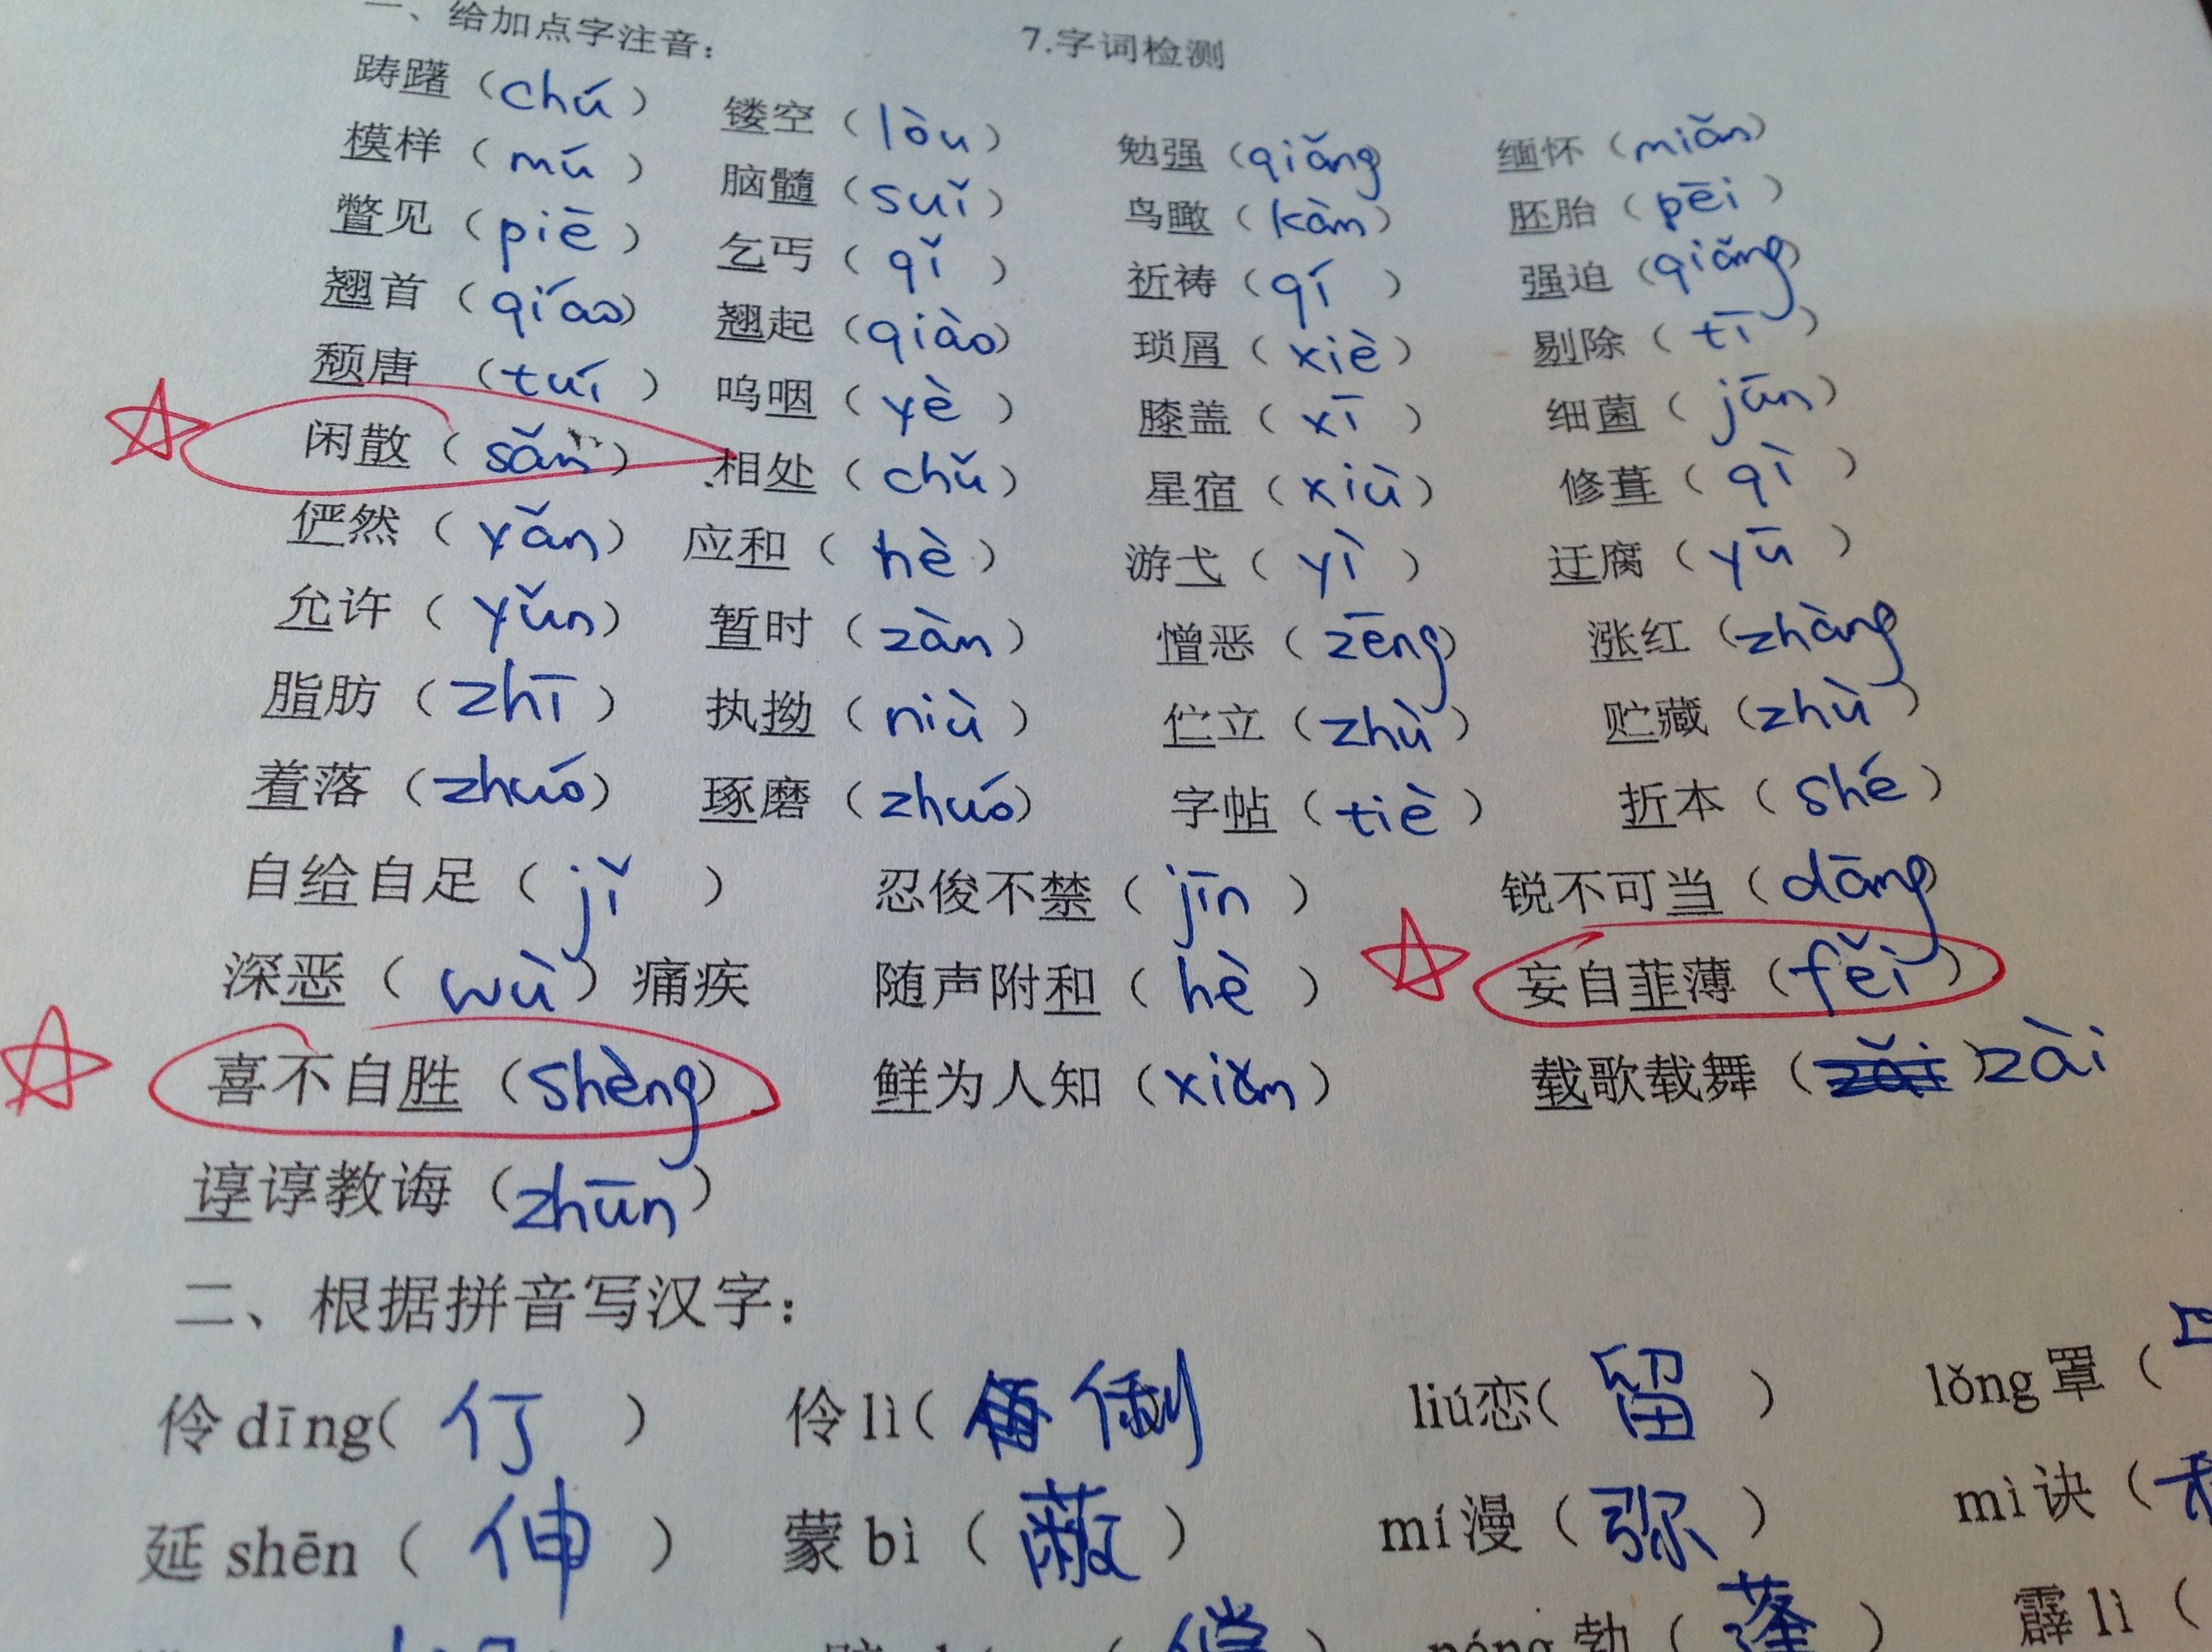 一、给加点字注音： 7.字词检测
踌躇（chú） 镂空（lòu） 勉强（qiǎng 缅怀（miǎn）
模样（mú） 脑髓（suǐ） 鸟瞰（kàn） 胚胎（pēi）
瞥见（piē） 乞丐（qǐ） 祈祷（qí） 强迫（qiǎng）
翘首（qiáo） 翘起（qiào） 琐屑（xiè） 剔除（tī）
颓唐（tuí） 呜咽（yè） 膝盖（xī） 细菌（jūn）
闲散（sǎn） 相处（chǔ） 星宿（xiù） 修葺（qì）
俨然（yǎn） 应和（hè） 游弋（yì） 迂腐（yū）
允许（yǔn） 暂时（zàn） 憎恶（zēng） 涨红（zhàng
脂肪（zhī） 执拗（niù） 伫立（zhù） 贮藏（zhù）
着落（zhuó） 琢磨（zhuó） 字帖（tiè） 折本（shé）
自给自足（jǐ） 忍俊不禁（jīn） 锐不可当（dāng
深恶（wù）痛疾 随声附和（hè） 妄自菲薄（fěi）
喜不自胜（shèng） 鲜为人知（xiǎn） 载歌载舞（zǎi）zài
谆谆教诲（zhūn）
二、根据拼音写汉字：
伶dīng(仃） 伶lì(俐 liú恋(留） lǒng罩（
延shēn（伸） 蒙bì（蔽） mí漫（弥） mì诀（
péng勃（蓬） 霹lì（